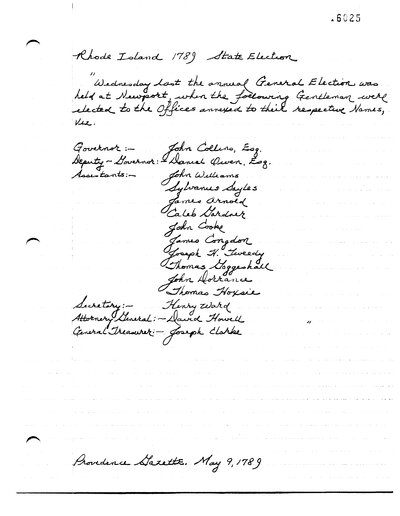 .6025
Rhode Island 1789 State Election
"Wednesday last the annual General Election was
held at Newport, when the following Gentleman were
elected to the Offices annexed to their respective Names,
viz.
Governor:— John Collins, Esq.
Deputy-Governor:— Daniel Owen, Esq.
Assistants:— John Williams
Sylvanus Sayles
James Arnold
Caleb Gardner
John Cooke
James Congdon
Joseph H. Tweedy
Thomas Goggeshall
John Dorrance
Thomas Hoxsie
Secretary:— Henry Ward
Attorney General:— David Howell "
General Treasurer:— Joseph Clarke
Providence Gazette. May 9, 1789